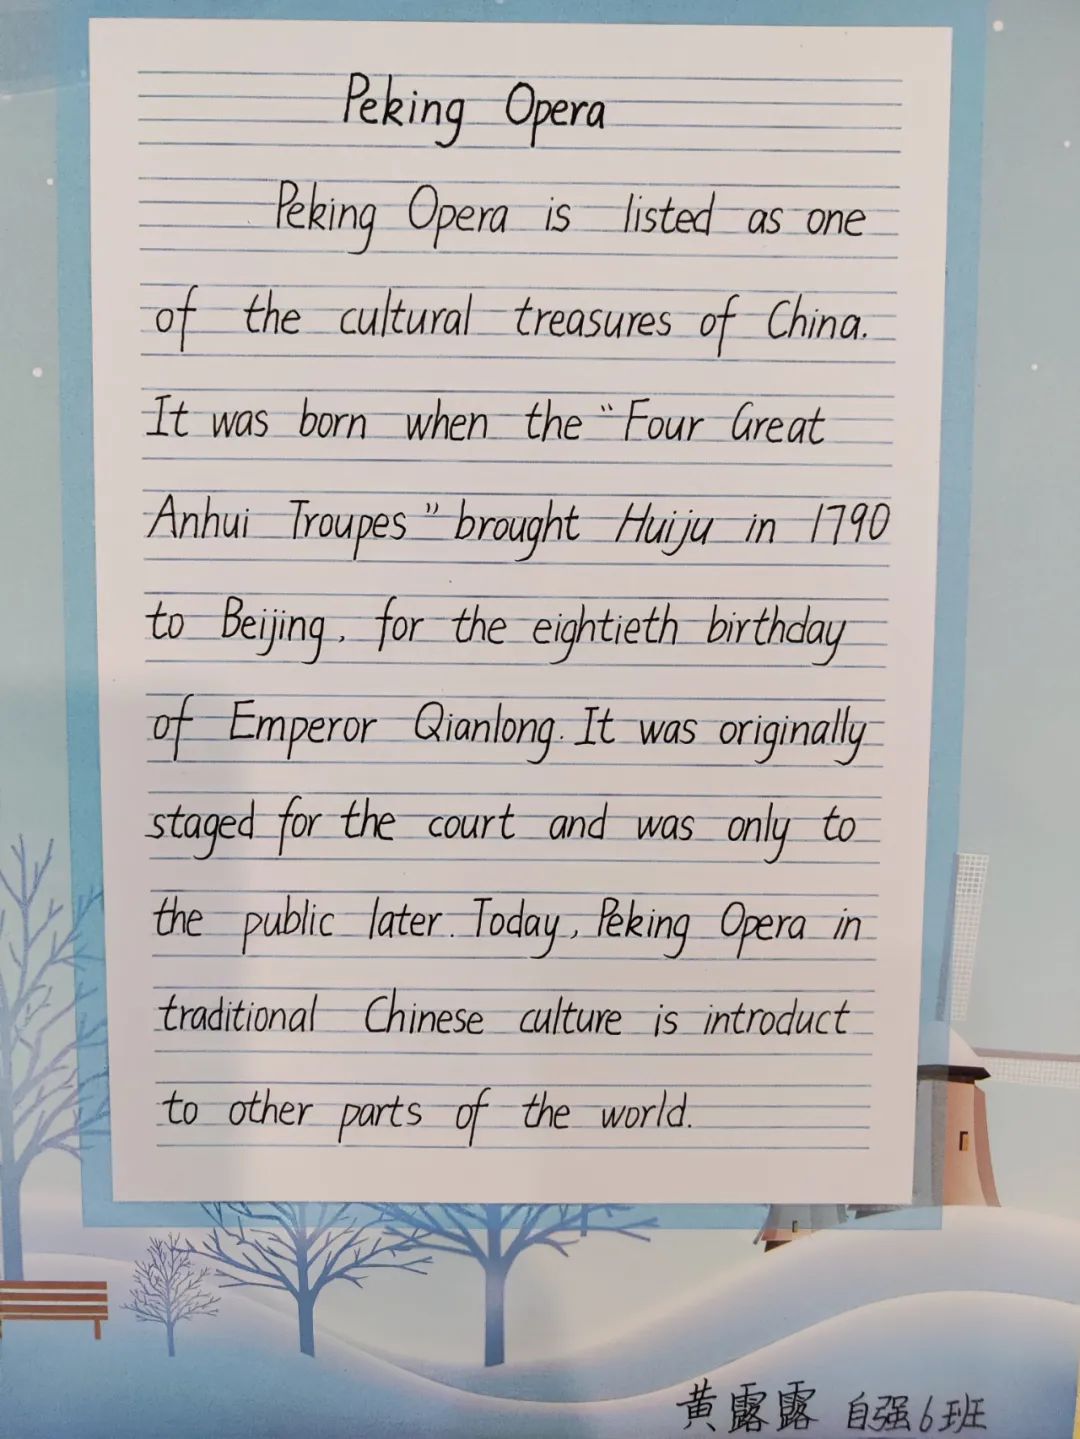 Peking Opera
Peking Opera is listed as one
of the cultural treasures of China.
It was born when the "Four Great
Anhui Troupes" brought Huiju in 1790
to Beijing, for the eightieth birthday
of Emperor Qianlong. It was originally
staged for the court and was only to
the public later. Today, Peking Opera in
traditional Chinese culture is introduct
to other parts of the world.
黄露露 自强6班